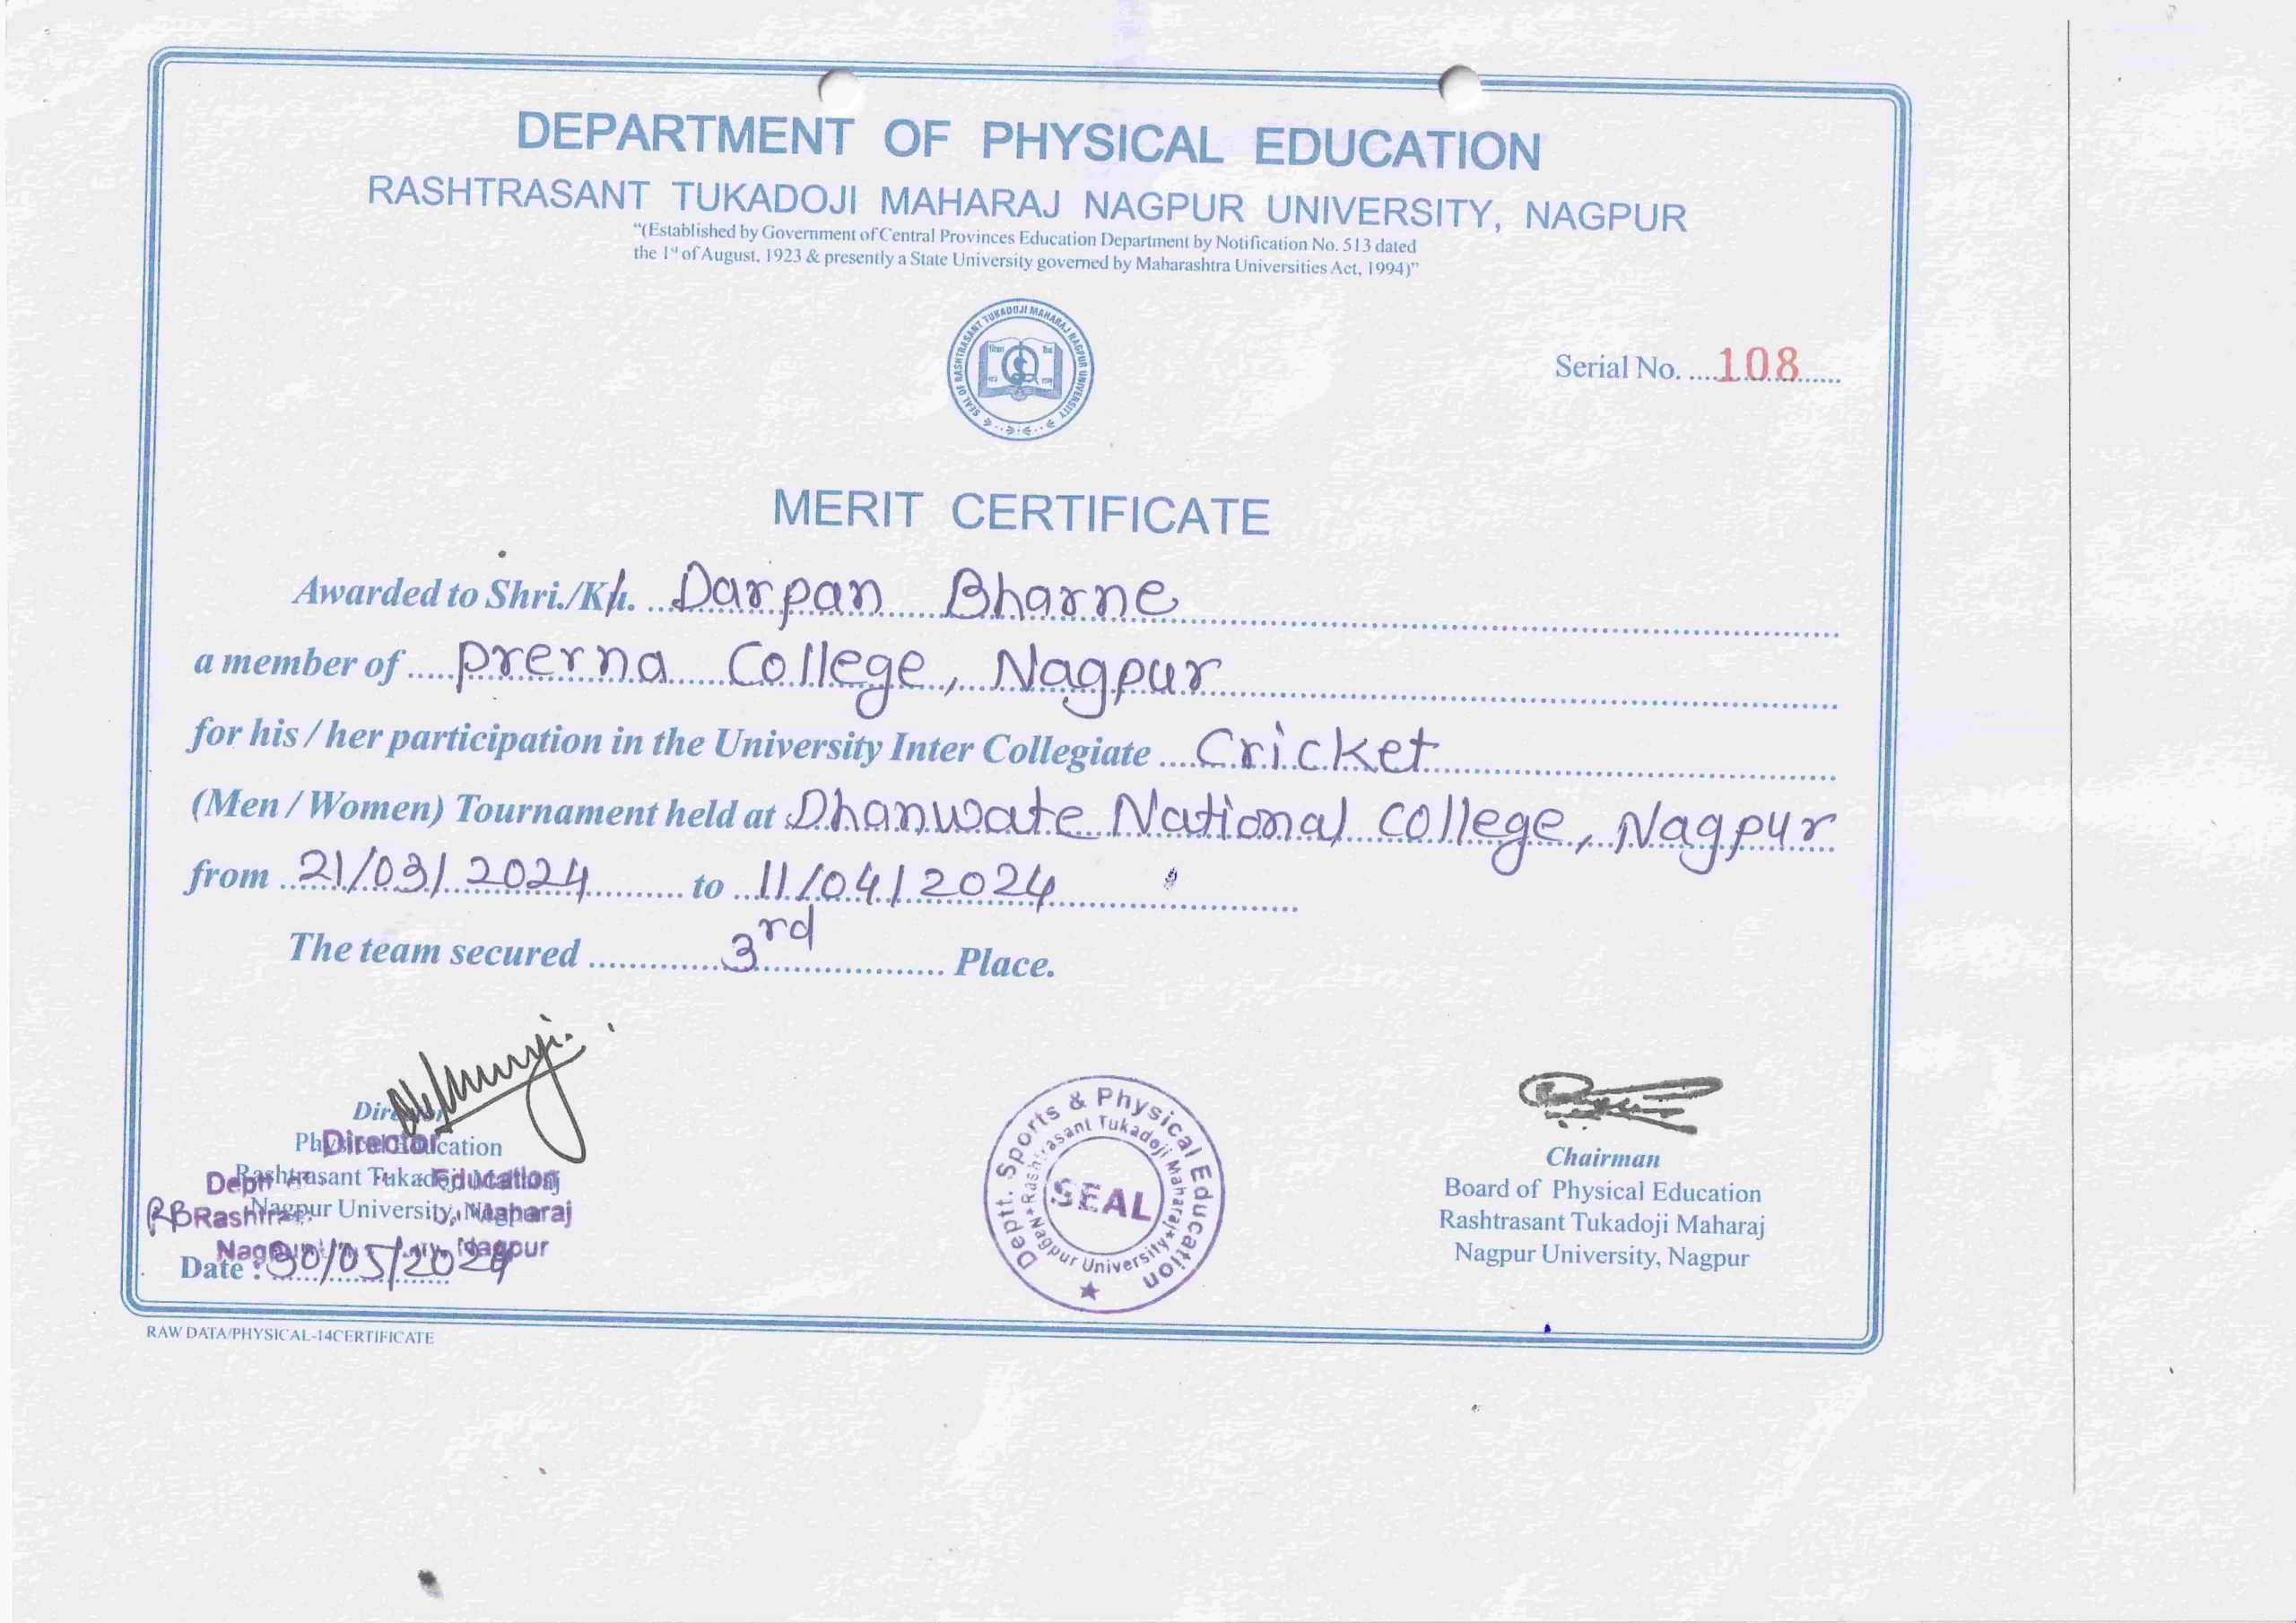 DEPARTMENT OF PHYSICAL EDUCATION
RASHTRASANT TUKADOJI MAHARAJ NAGPUR UNIVERSITY, NAGPUR
"(Established by Government of Central Provinces Education Department by Notification No. 513 dated
the 1st of August, 1923 & presently a State University governed by Maharashtra Universities Act, 1994)"
SEAL OF RASHTRASANT TUKADOJI MAHARAJ NAGPUR UNIVERSITY
Serial No. 108
MERIT CERTIFICATE
Awarded to Shri./Ku. Darpan Bharne
a member of Prerna College, Nagpur
for his / her participation in the University Inter Collegiate Cricket
(Men / Women) Tournament held at Dhanwate National College, Nagpur
from 21/03/2024 to 11/04/2024
The team secured 3rd Place.
Director
Physical Education
Rashtrasant Tukadoji Maharaj
Nagpur University, Nagpur
Director
Education
Maharaj
Nagpur
Date : 30/05/2024
Deptt. Sports & Physical Education
Rashtrasant Tukadoji Maharaj
Nagpur University
SEAL
Chairman
Board of Physical Education
Rashtrasant Tukadoji Maharaj
Nagpur University, Nagpur
RAW DATA/PHYSICAL-14CERTIFICATE